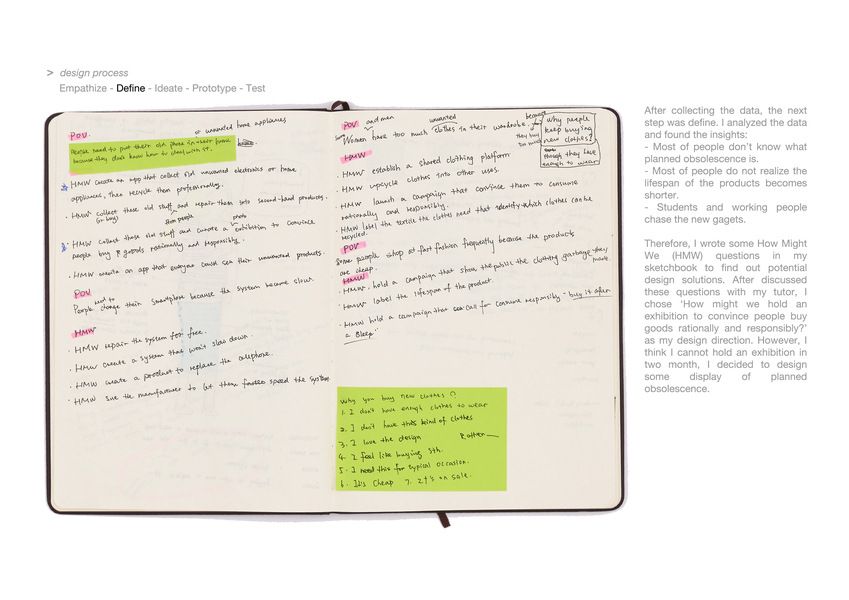 > design process
Empathize - Define - Ideate - Prototype - Test
POV.
or unwanted home appliances
People need to put their old phone in their home
because they don't know how to deal with it.
HMW create an app that collect old unwanted electronics or home
appliances, then recycle them professionally.
· HMW collect these old stuff and repair them into second-hand products.
(or buy)
from people
photo
HMW collect these old stuff and curate a exhibition to convince
people buy goods rationally and responsibly.
· HMW create an app that everyone could see their unwanted products.
POV
need to
People change their smartphone because the system become slow.
HMW
· HMW repair the system for free.
· HMW create a system that won't slow down.
· HMW create a product to replace the cellphone.
· HMW sue the manufacturer to let them faster speed the system.
POV
and men
unwanted
Some
Women have too much clothes in their wardrobe.
because
they buy
too much
why people
keep buying
new clothes?
though they have
enough to wear
HMW
· HMW establish a shared clothing platform
· HMW upcycle clothes into other uses.
· HMW launch a campaign that convince them to consume
rationally and responsibly.
· HMW label the textile the clothes need that identify which clothes can be
recycled.
POV
Some people shop at fast fashion frequently because the products
are cheap.
HMW
· HMW hold a campaign that show the public the clothing garbage they
made.
· HMW label the lifespan of the product.
· HMW hold a campaign that can call for consume responsibly - buy it after
a sleep
Why you buy new clothes ?
1. I don't have enough clothes to wear
2. I don't have this kind of clothes
3. I love the design
4. I feel like buying sth.
5. I need this for typical occasion.
6. It's cheap 7. It's on sale.
8. other
After collecting the data, the next
step was define. I analyzed the data
and found the insights:
- Most of people don't know what
planned obsolescence is.
- Most of people do not realize the
lifespan of the products becomes
shorter.
- Students and working people
chase the new gagets.
Therefore, I wrote some How Might
We (HMW) questions in my
sketchbook to find out potential
design solutions. After discussed
these questions with my tutor, I
chose 'How might we hold an
exhibition to convince people buy
goods rationally and responsibly?'
as my design direction. However, I
think I cannot hold an exhibition in
two month, I decided to design
some display of planned
obsolescence.